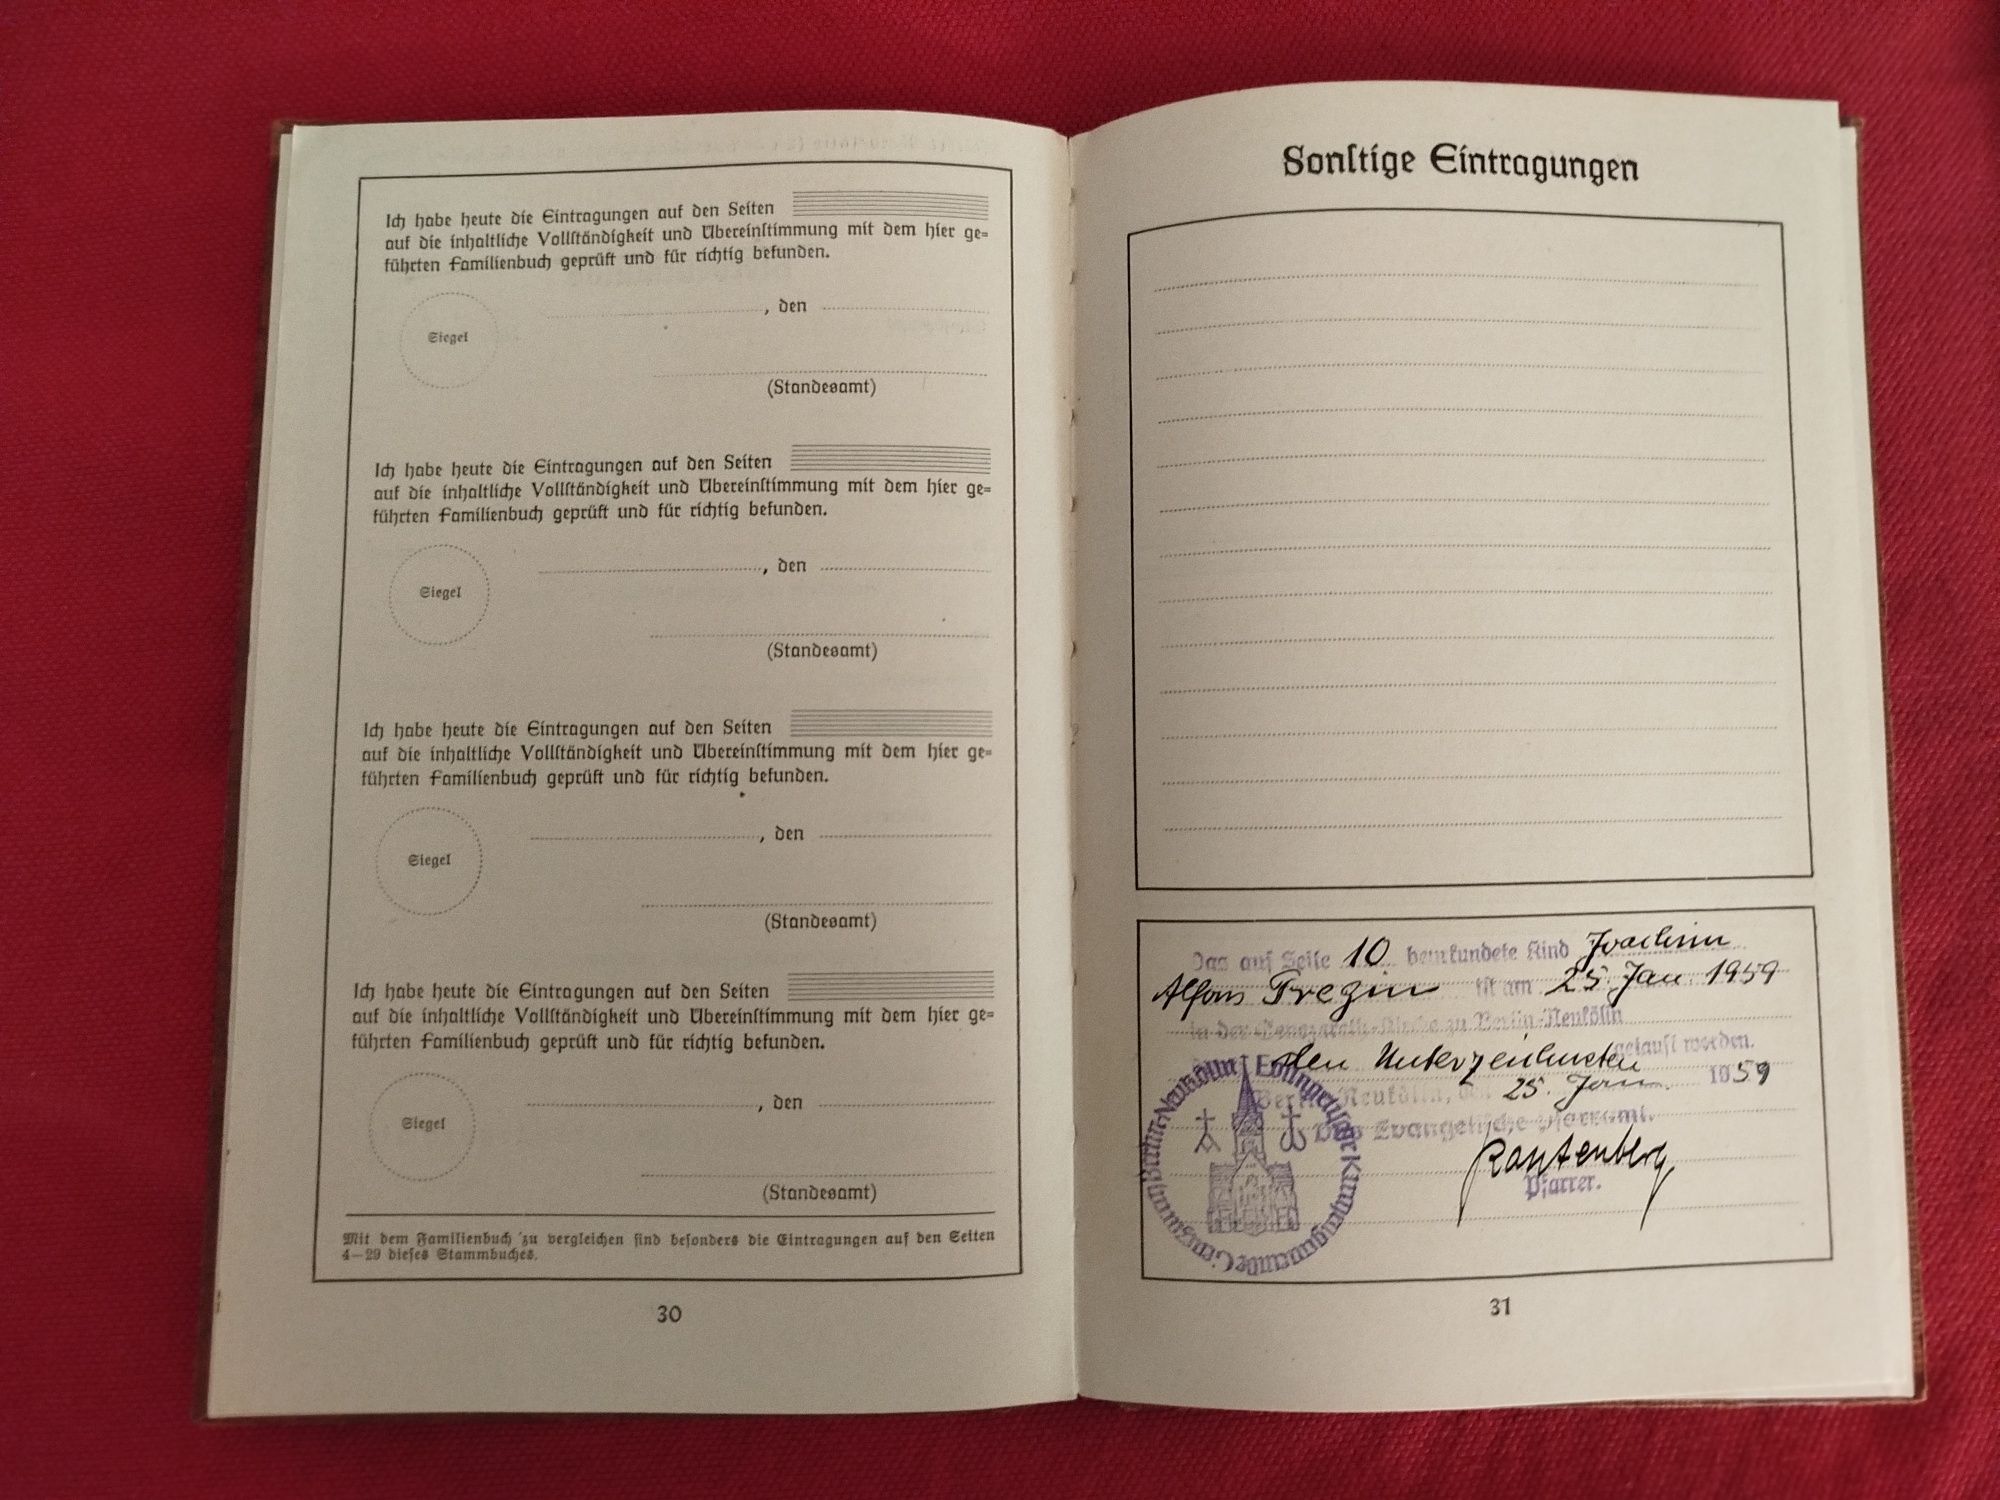 Ich habe heute die Eintragungen auf den Seiten
auf die inhaltliche Vollständigkeit und Übereinstimmung mit dem hier ge=
führten Familienbuch geprüft und für richtig befunden.
Siegel
, den
(Standesamt)
Ich habe heute die Eintragungen auf den Seiten
auf die inhaltliche Vollständigkeit und Übereinstimmung mit dem hier ge=
führten Familienbuch geprüft und für richtig befunden.
Siegel
, den
(Standesamt)
Ich habe heute die Eintragungen auf den Seiten
auf die inhaltliche Vollständigkeit und Übereinstimmung mit dem hier ge=
führten Familienbuch geprüft und für richtig befunden.
Siegel
, den
(Standesamt)
Ich habe heute die Eintragungen auf den Seiten
auf die inhaltliche Vollständigkeit und Übereinstimmung mit dem hier ge=
führten Familienbuch geprüft und für richtig befunden.
Siegel
, den
(Standesamt)
Mit dem Familienbuch zu vergleichen sind besonders die Eintragungen auf den Seiten
4—29 dieses Stammbuches.
30
Sonstige Eintragungen
Das auf Seite 10 beurkundete Kind Joachim
Alfons Trezin ist am 25. Jan. 1959
in der Genezareth-Kirche zu Berlin-Neukölln
den Unterzeichneten getauft worden.
Berlin-Neukölln, den 25. Jan. 1959
Das Evangelische Pfarramt.
Rautenberg
Pfarrer.
Evangelische Kirchengemeinde Genezareth Berlin-Neukölln
31